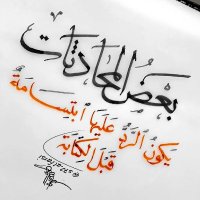 بَعْضُ المُحَادَثَاتِ
يَكُونُ الرَّدُّ عَلَيْهَا ابْتِسَامَةً
قَبْلَ الكِتَابَةِ